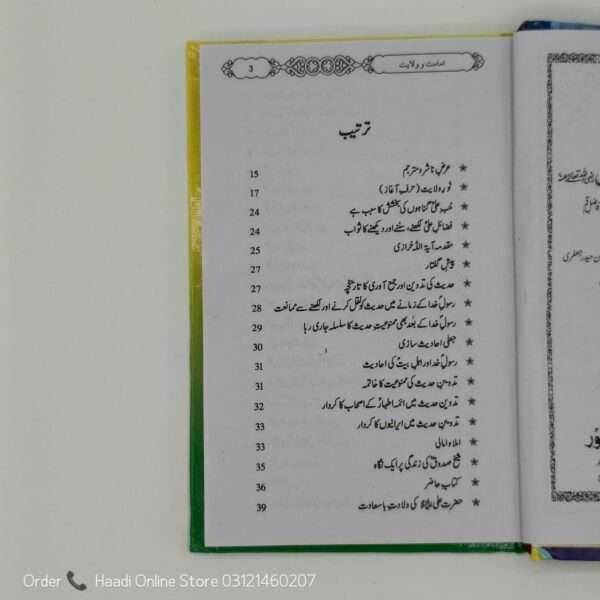 امامت و ولایت
3
ترتیب
عرضِ ناشر و مترجم 15
نورِ ولایت (حرفِ آغاز) 17
حُبِ علیؑ گناہوں کی بخشش کا سبب ہے 24
فضائلِ علیؑ لکھنے، سننے اور دیکھنے کا ثواب 24
مقدمہ آیۃ اللہ خرازی 25
پیش گفتار 27
حدیث کی تدوین اور جمع آوری کا تاریخچہ 27
رسولِ خداؐ کے زمانے میں حدیث کو نقل کرنے اور لکھنے سے ممانعت 28
رسولِ خداؐ کے بعد بھی ممنوعیتِ حدیث کا سلسلہ جاری رہا 29
جعلی احادیث سازی 30
رسولِ خداؐ اور اہلِ بیتؑ کی احادیث 31
تدوینِ حدیث کی ممنوعیت کا خاتمہ 31
تدوینِ حدیث میں ائمہ اطہارؑ کے اصحاب کا کردار 32
تدوینِ حدیث میں ایرانیوں کا کردار 33
املاء و امالی 33
شیخ صدوقؒ کی زندگی پر ایک نگاہ 35
کتابِ حاضر 36
حضرت علی علیہ السلام کی ولادتِ باسعادت 39
ن حیدر جعفری
Order Haadi Online Store 03121460207